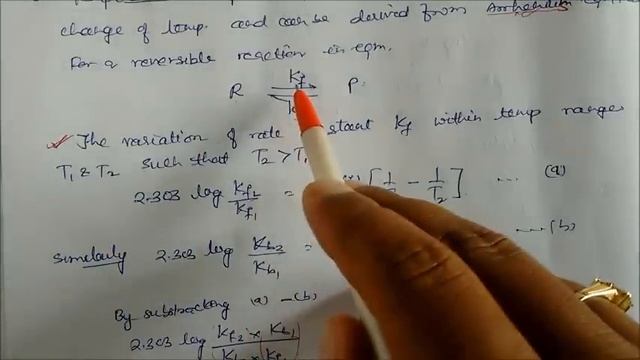 change of temp. and can be derived from Arrhenius
For a reversible reaction in eqm.
R Kf P
The variation of rate Kf within temp ranges
T1 & T2 such that T2 > T1
2.303 log Kf2/Kf1 = [ 1/ - 1/T2 ] ... (a)
Similarly 2.303 log Kb2/Kb1 = ...(b)
By substracting (a) - (b)
2.303 log Kf2 × Kb1